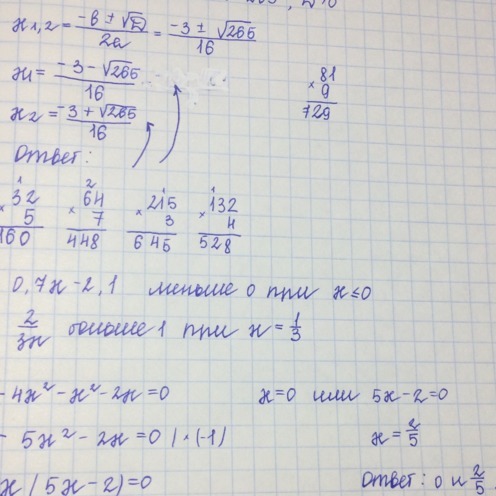 x₁,₂ = (-b ± √D)/2a = (-3 ± √265)/16
x₁ = (-3 - √265)/16
x₂ = (-3 + √265)/16
Ответ:
81
× 9
729
32
× 5
160
64
× 7
448
215
× 3
645
132
× 4
528
0,7x - 2,1 меньше 0 при x ≤ 0
2/3x больше 1 при x = 1/3
- 4x² - x² - 2x = 0
x = 0 или 5x - 2 = 0
- 5x² - 2x = 0 | · (-1)
x = 2/5
x (5x - 2) = 0
Ответ: 0 и 2/5.